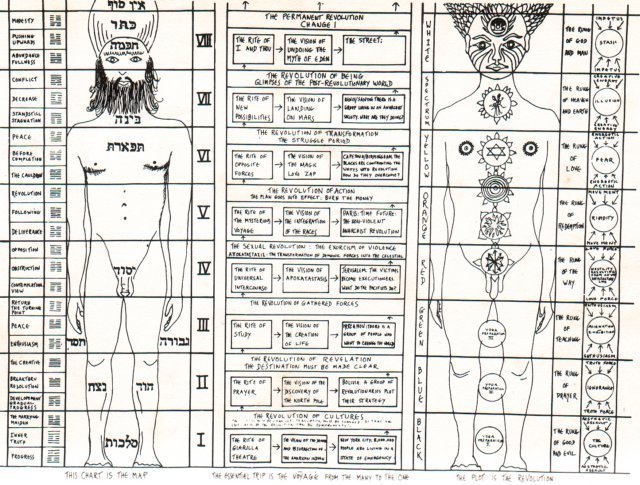 אין סוף
כתר
חכמה
בינה
תפארת
יסוד
חסד
גבורה
נצח
הוד
מלכות
MODESTY
PUSHING
UPWARDS
ABUNDANCE
FULLNESS
CONFLICT
DECREASE
STANDSTILL
STAGNATION
PEACE
BEFORE
COMPLETION
THE CAULDRON
REVOLUTION
FOLLOWING
DELIVERANCE
OPPOSITION
OBSTRUCTION
CONTEMPLATION
VIEW
RETURN
THE TURNING
POINT
PEACE
ENTHUSIASM
THE CREATIVE
BREAKTHRU
RESOLUTION
DEVELOPMENT
GRADUAL
PROGRESS
THE MARRYING
MAIDEN
INNER
TRUTH
PROGRESS
THIS CHART IS THE MAP
THE PERMANENT REVOLUTION
CHANGE!
VIII
THE RITE OF
I AND THOU
THE VISION OF
UNDOING THE
MYTH OF EDEN
THE STREET:
THE REVOLUTION OF BEING
GLIMPSES OF THE POST-REVOLUTIONARY WORLD
VII
THE RITE OF
NEW
POSSIBILITIES
THE VISION OF
LANDING
ON MARS
THE REVOLUTION OF TRANSFORMATION
THE STRUGGLE PERIOD
VI
THE RITE OF
OPPOSITE
FORCES
THE VISION OF
THE MAGIC
LOVE ZAP
THE REVOLUTION OF ACTION
THE PLAN GOES INTO EFFECT: BURN THE MONEY
V
THE RITE OF
THE MYSTERIOUS
VOYAGE
THE VISION OF
THE INTEGRATION
OF THE RACES
PARIS: TIME FUTURE:
THE NON-VIOLENT
ANARCHIST REVOLUTION
THE SEXUAL REVOLUTION: THE EXORCISM OF VIOLENCE
APOKATASTASIS: THE TRANSFORMATION OF DEMONIC FORCES INTO THE CELESTIAL
IV
THE RITE OF
UNIVERSAL
INTERCOURSE
THE VISION OF
APOKATASTASIS
JERUSALEM: THE VICTIMS
BECOME EXECUTIONERS.
THE REVOLUTION OF GATHERED FORCES
III
THE RITE OF
STUDY
THE VISION OF
THE CREATION
OF LIFE
THERE IS A
GROUP OF PEOPLE WHO
WANT TO CHANGE THE WORLD
THE REVOLUTION OF REVELATION
THE DESTINATION MUST BE MADE CLEAR
II
THE RITE OF
PRAYER
THE VISION OF THE
DISCOVERY OF
THE NORTH POLE
BOLIVIA: A GROUP OF
REVOLUTIONARIES PLOT
THEIR STRATEGY
THE REVOLUTION OF CULTURES
I
THE RITE OF
GUERILLA
THEATRE
THE VISION OF THE DEATH
AND RESURRECTION OF
THE AMERICAN INDIAN
NEW YORK CITY: 8,000,000
PEOPLE ARE LIVING IN A
STATE OF EMERGENCY
THE ESSENTIAL TRIP IS THE VOYAGE FROM THE MANY TO THE ONE
WHITE
SPECTRUM
YELLOW
ORANGE
RED
GREEN
BLUE
BLACK
THE RUNG
OF GOD
AND MAN
THE RUNG
OF HEAVEN
AND EARTH
THE RUNG
OF LOVE
THE RUNG
OF
REDEMPTION
THE RUNG
OF THE
WAY
THE RUNG
OF
TEACHING
THE RUNG
OF
PRAYER
THE RUNG
OF GOOD
AND EVIL
IMPETUS
STASIS
IMPETUS
CREATIVE
ENERGY
ILLUSION
CREATIVE
ENERGY
ENERGETIC
ACTION
FEAR
ENERGETIC
ACTION
MOVEMENT
RIGIDITY
MOVEMENT
LOVE FORCE
LOVE FORCE
ENTHUSIASM
ENTHUSIASM
TRUTH FORCE
IGNORANCE
TRUTH FORCE
AESTHETIC
ASSAULT
THE
CULTURE
AESTHETIC
ASSAULT
THE PLOT IS THE REVOLUTION